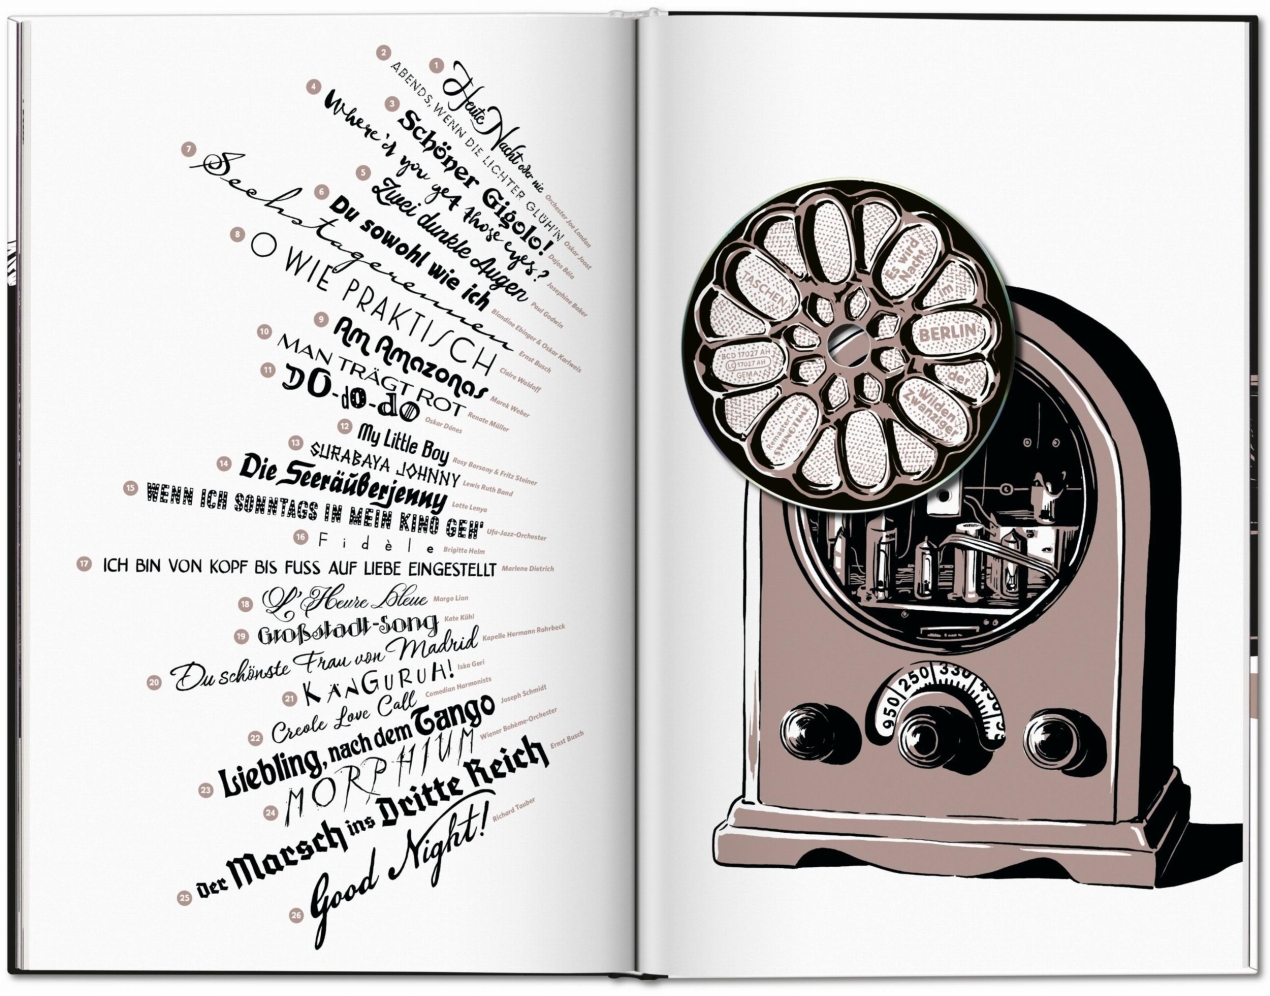 1 Heute Nacht oder nie Orchester Joe London
2 ABENDS, WENN DIE LICHTER GLÜH'N Oskar Joost
3 Schöner Gigolo! Dajos Béla
4 Where'd you get those eyes? Josephine Baker
5 Zwei dunkle Augen Paul Godwin
6 Du sowohl wie ich Blandine Ebinger & Oskar Karlweis
7 Sechstagerennen Ernst Busch
8 O WIE PRAKTISCH Claire Waldoff
9 Am Amazonas Marek Weber
10 MAN TRÄGT ROT Renate Müller
11 DO-do-do Oskar Dénes
12 My Little Boy Rosy Barsony & Fritz Steiner
13 SURABAYA JOHNNY Lewis Ruth Band
14 Die Seeräuberjenny Lotte Lenya
15 WENN ICH SONNTAGS IN MEIN KINO GEH' Ufa-Jazz-Orchester
16 Fidèle Brigitte Helm
17 ICH BIN VON KOPF BIS FUSS AUF LIEBE EINGESTELLT Marlene Dietrich
18 L'Heure bleue Margo Lion
19 Großstadt-Song Kate Kühl
20 Du schönste Frau von Madrid Kapelle Hermann Rohrbeck
21 KÄNGURUH!
22 Creole Love Call Comedian Harmonists
23 Liebling, nach dem Tango Joseph Schmidt
24 MORPHIUM Wiener Bohème-Orchester
25 Der Marsch ins Dritte Reich Ernst Busch
26 Good Night! Richard Tauber
TASCHEN
Es wird
Nacht
im
BERLIN
der
Wilden
Zwanziger
BCD 17027 AH
LC 17027 AH
GEMA
SWINGTIME
950 250 330